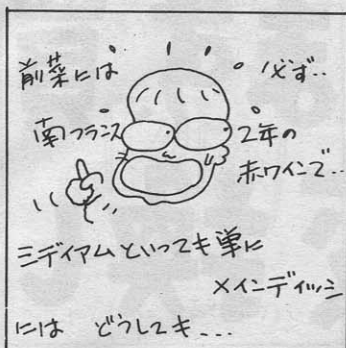 前菜には
必ず..
南フランス
2年の
赤ワインで..
ミディアムといっても単に
メインディッシュ
には どうしても...